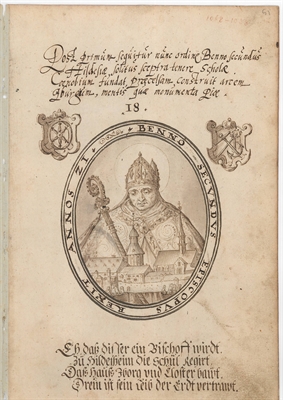 Post primum sequitur nunc ordine Benno secundus
Hildesiæ solitus sceptra tenere Scholæ
Cœnobium fundat, procelsam construit arcem
Iburgum, mentis quæ monumenta piæ.
18.
BENNO SECVNDVS EPISCOPVS
REXIT ANNOS ZI
Eh daß diser ein Bischoff wirdt.
Zu Hildesheim die Schul Regirt
Daß Hauß Iborg vnd Closter bawt,
Drein ist sein leib der Erdt vertrawt.